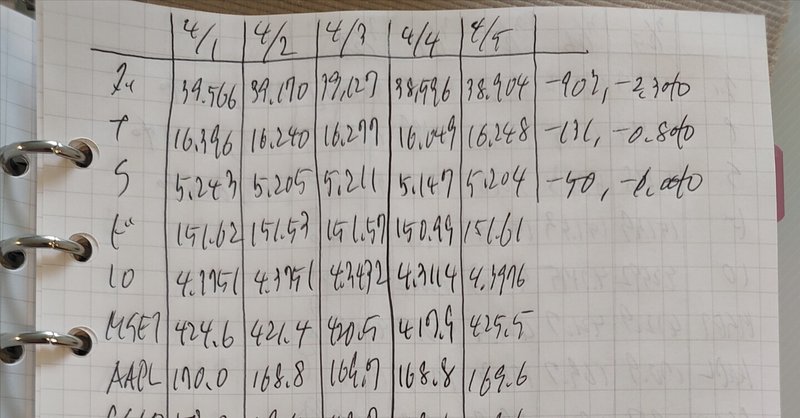 4/1 4/2 4/3 4/4 4/5
39.566 39.170 39,127 38,596 38.904 -902, -2.3%
T 16.396 16.240 16.277 16.049 16.248 -131, -0.8%
S 5.243 5.205 5.211 5.147 5.204 -50,
151.62 151.53 151.57 150.99 151.61
10 4.3751 4.3751 4.3432 4.3114 4.3976
MSFT 424.6 421.4 420.5 417.9 425.5
AAPL 170.0 168.8 169.7 168.8 169.6